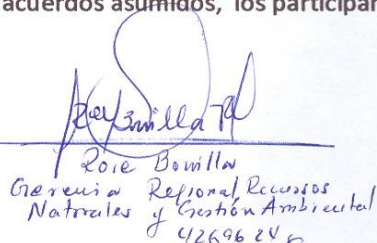 acuerdos asumidos, los participan
Rose Bonilla
Gerencia Regional Recursos
Naturales y Gestión Ambiental